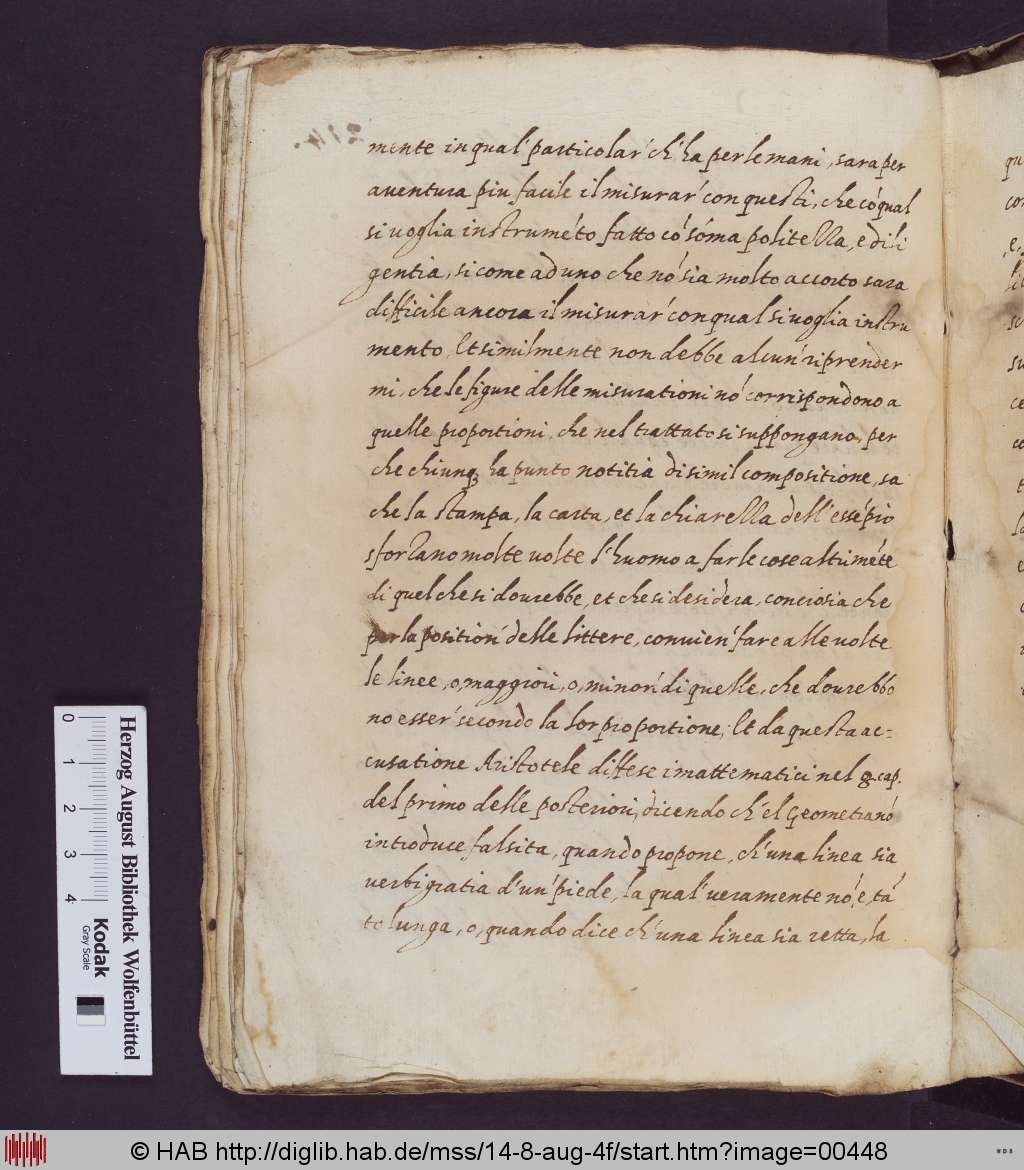 mente in qual' particolar' ch' ha per le mani, sara per
auentura piu facile il misurar' con questi, che có qual
si uoglia instruméto fatto có sóma politella, e dili
gentia, si come ad uno che nó sia molto accorto sara
difficile ancora il misurar' con qual si uoglia instru
mento, Et similmente non debbe alcun' riprender
mi, che le figure delle misurationi nó corrispondono a
quelle proportioni, che nel trattato si suppongano, per
che chiunq; ha punto notitia di simil compositione, sa
che la stampa, la carta, et la chiarella dell' essépio
sforzano molte uolte l'huomo a far le cose altriméte
di quel che si dourebbe, et che si desidera, conciosia che
per la position' delle littere, conuien' fare alle uolte
le linee, o, maggiori, o, minori di quelle, che dourebbo
no esser' secondo la lor proportione; Et da questa ac=
cusatione Aristotele diffese i mattematici nel 8. cap.
del primo delle posteriori, dicendo ch' el Geometra nó
introduce falsita, quando propone, ch' una linea sia
uerbigratia d'un' piede, la qual' ueramente nó, e, tá
to lunga, o, quando dice ch' una linea sia retta, la
qu
con
e,
0 1 2 3 4
Herzog August Bibliothek Wolfenbüttel
Kodak
Gray Scale
© HAB http://diglib.hab.de/mss/14-8-aug-4f/start.htm?image=00448